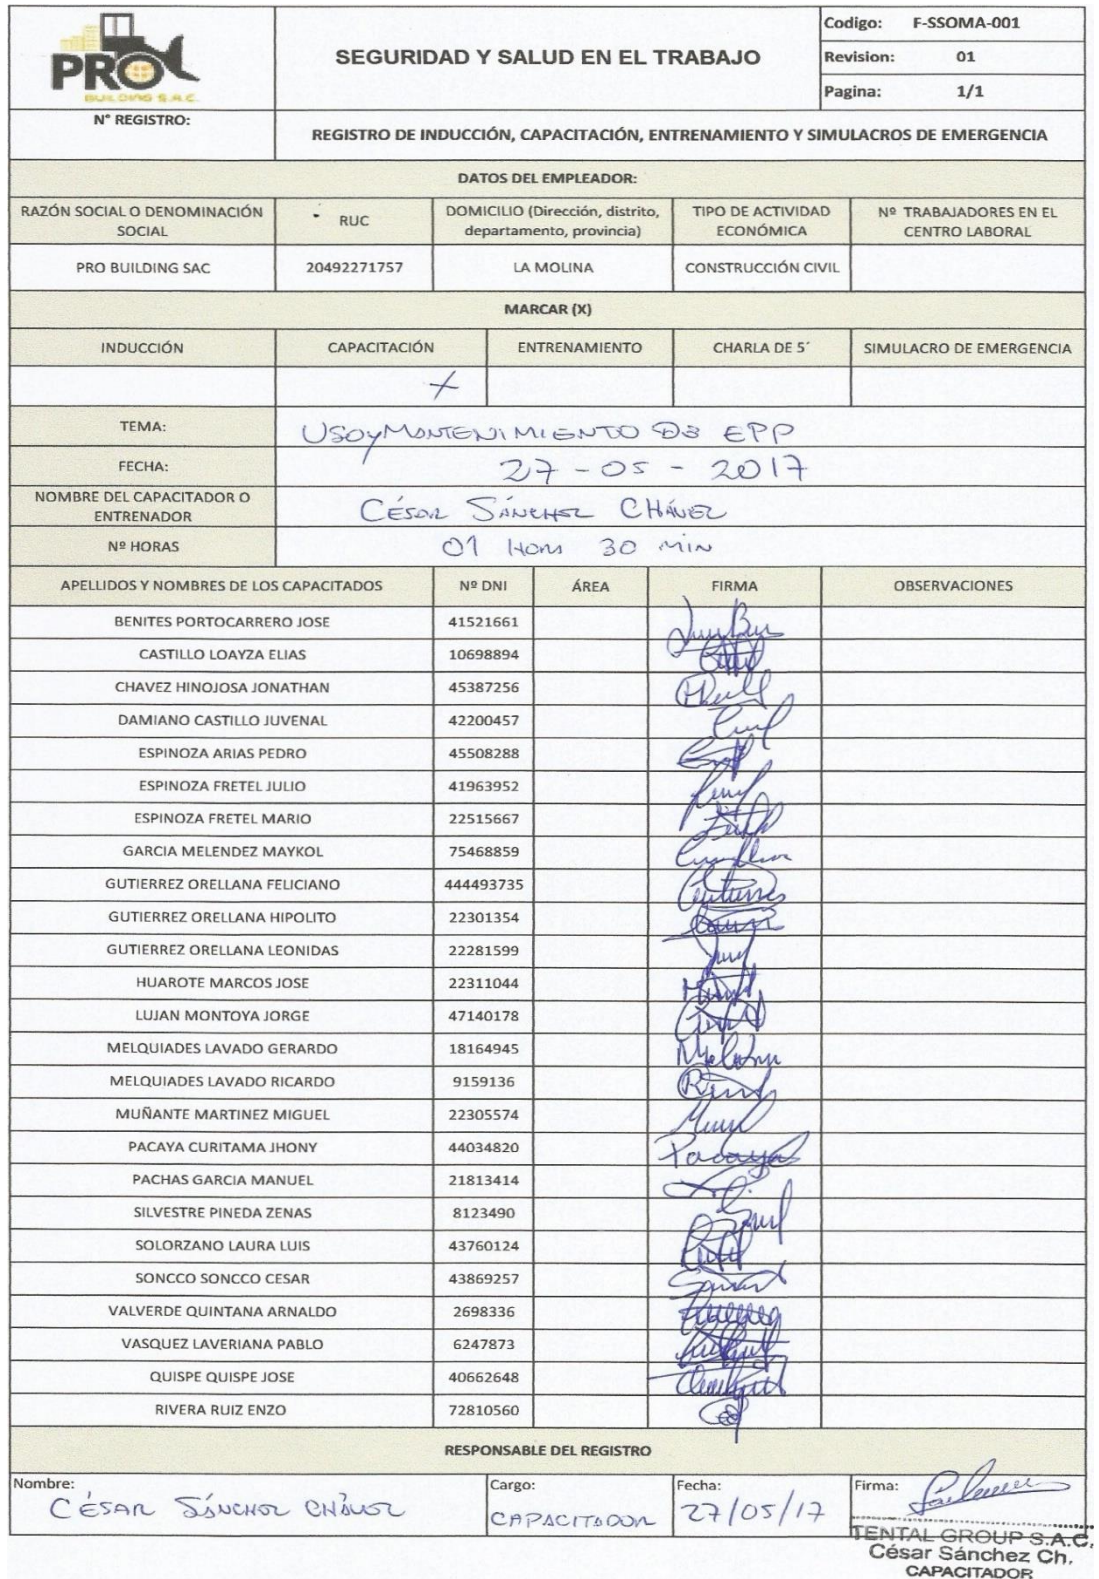 PRO
BUILDING S.A.C.
SEGURIDAD Y SALUD EN EL TRABAJO
Codigo: F-SSOMA-001
Revision: 01
Pagina: 1/1
N° REGISTRO:
REGISTRO DE INDUCCIÓN, CAPACITACIÓN, ENTRENAMIENTO Y SIMULACROS DE EMERGENCIA
DATOS DEL EMPLEADOR:
RAZÓN SOCIAL O DENOMINACIÓN SOCIAL
RUC
DOMICILIO (Dirección, distrito, departamento, provincia)
TIPO DE ACTIVIDAD ECONÓMICA
Nº TRABAJADORES EN EL CENTRO LABORAL
PRO BUILDING SAC 20492271757 LA MOLINA CONSTRUCCIÓN CIVIL
MARCAR (X)
INDUCCIÓN CAPACITACIÓN ENTRENAMIENTO CHARLA DE 5´ SIMULACRO DE EMERGENCIA
X
TEMA: USO Y MANTENIMIENTO DE EPP
FECHA: 27-05-2017
NOMBRE DEL CAPACITADOR O ENTRENADOR CÉSAR SÁNCHEZ CHÁVEZ
Nº HORAS 01 HORA 30 MIN
APELLIDOS Y NOMBRES DE LOS CAPACITADOS Nº DNI ÁREA FIRMA OBSERVACIONES
BENITES PORTOCARRERO JOSE 41521661
CASTILLO LOAYZA ELIAS 10698894
CHAVEZ HINOJOSA JONATHAN 45387256
DAMIANO CASTILLO JUVENAL 42200457
ESPINOZA ARIAS PEDRO 45508288
ESPINOZA FRETEL JULIO 41963952
ESPINOZA FRETEL MARIO 22515667
GARCIA MELENDEZ MAYKOL 75468859
GUTIERREZ ORELLANA FELICIANO 444493735
GUTIERREZ ORELLANA HIPOLITO 22301354
GUTIERREZ ORELLANA LEONIDAS 22281599
HUAROTE MARCOS JOSE 22311044
LUJAN MONTOYA JORGE 47140178
MELQUIADES LAVADO GERARDO 18164945
MELQUIADES LAVADO RICARDO 9159136
MUÑANTE MARTINEZ MIGUEL 22305574
PACAYA CURITAMA JHONY 44034820
PACHAS GARCIA MANUEL 21813414
SILVESTRE PINEDA ZENAS 8123490
SOLORZANO LAURA LUIS 43760124
SONCCO SONCCO CESAR 43869257
VALVERDE QUINTANA ARNALDO 2698336
VASQUEZ LAVERIANA PABLO 6247873
QUISPE QUISPE JOSE 40662648
RIVERA RUIZ ENZO 72810560
RESPONSABLE DEL REGISTRO
Nombre: CÉSAR SÁNCHEZ CHÁVEZ
Cargo: CAPACITADOR
Fecha: 27/05/17
Firma:
TENTAL GROUP S.A.C.
César Sánchez Ch.
CAPACITADOR